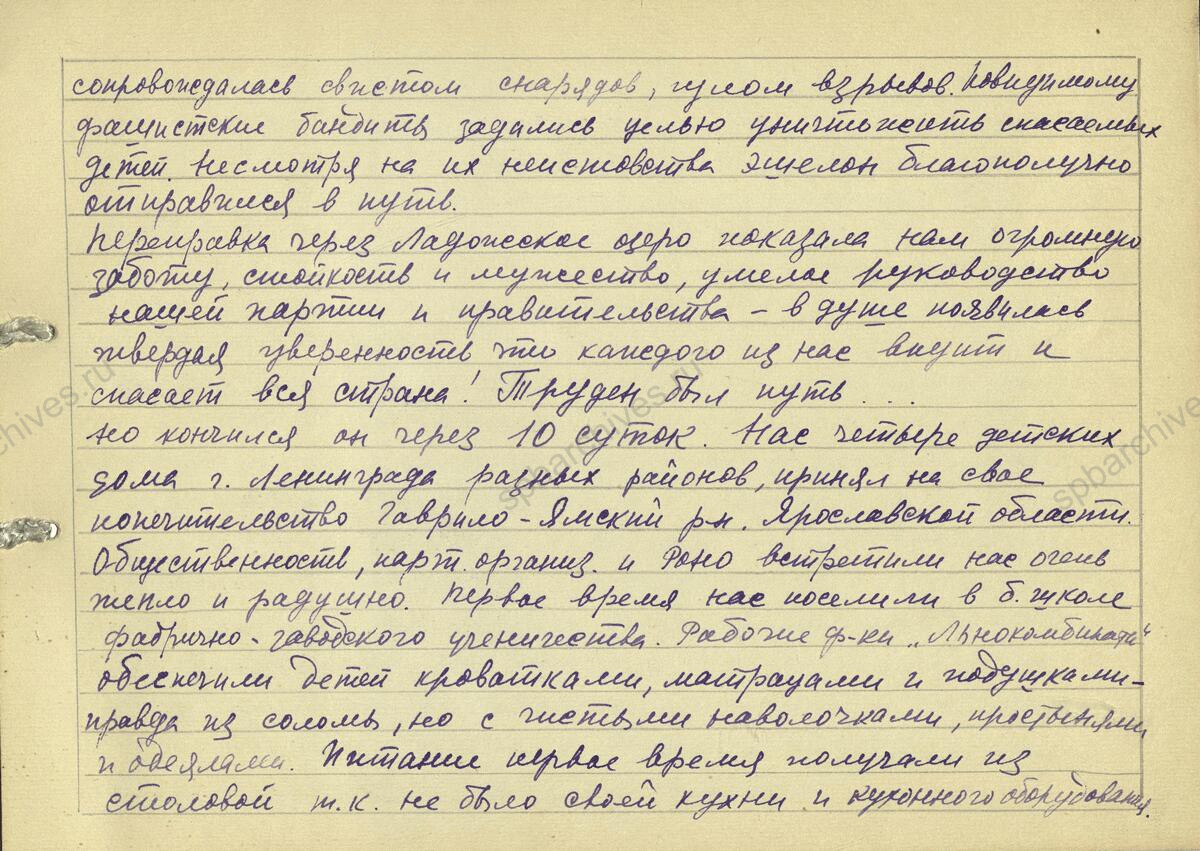 сопровождалась свистом снарядов, гулом взрывов. Повидимому
фашистские бандиты задались целью уничтожить спасаемых
детей. Несмотря на их неистовства эшелон благополучно
отправился в путь.
Переправка через Ладожское озеро показала нам огромную
заботу, стойкость и мужество, умелое руководство
нашей партии и правительства – в душе появилась
твердая уверенность что каждого из нас видит и
спасает вся страна! Труден был путь . . .
но кончился он через 10 суток. Нас четыре детских
дома г. Ленинграда разных районов, принял на свое
попечительство Гаврило-Ямский р-н. Ярославской области.
Общественность, парт. организ. и Роно встретили нас очень
тепло и радушно. Первое время нас поселили в б. школе
фабрично-заводского ученичества. Рабочие ф-ки „Льнокомбината"
обеспечили детей кроватками, матрацами и подушками –
правда из соломы, но с чистыми наволочками, простынями
и одеялами. Питание первое время получали из
столовой т.к. не было своей кухни и кухонного оборудования.
spbarchives.ru
spbarchives.ru
spbarchives